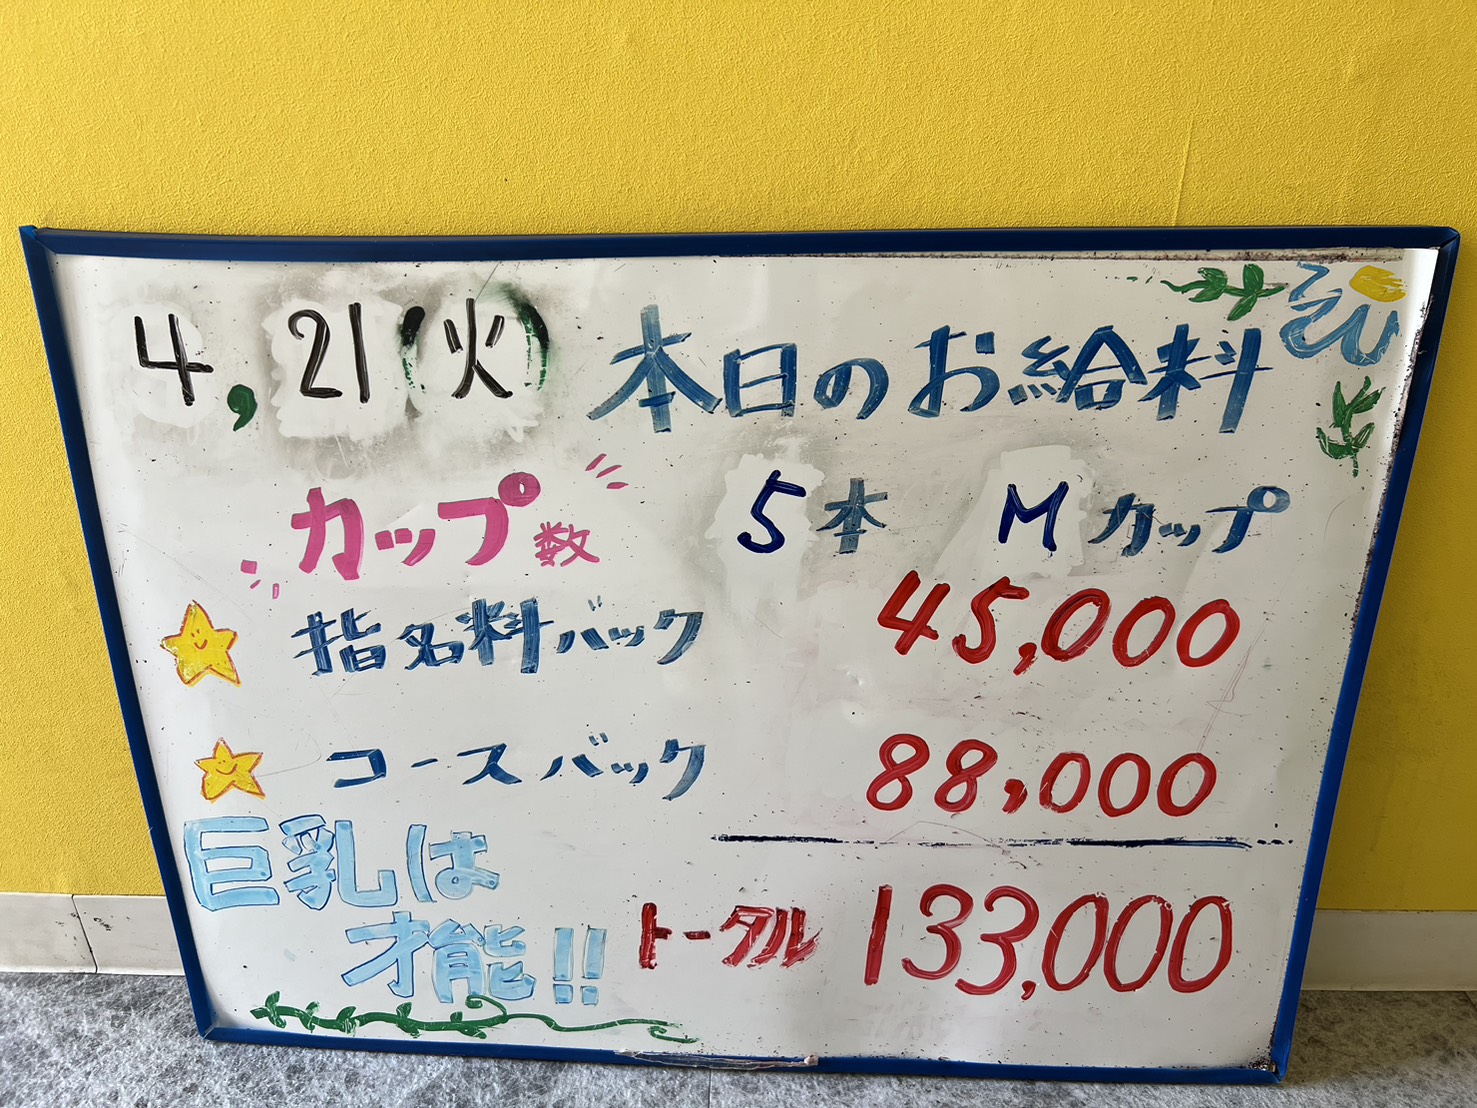 4,21(火) 本日のお給料
カップ数 5本 Mカップ
指名料バック 45,000
コースバック 88,000
巨乳は
才能!!
トータル 133,000